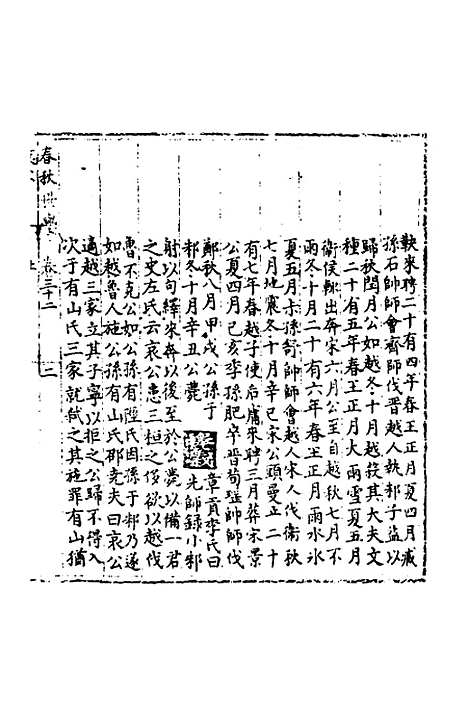 鞅來聘二十有四年春王正月夏四月臧
孫石師師會齊師伐晉越人執邾子益以
歸秋閏月公如越冬十月越殺其大夫文
種二十有五年春王正月大雨雪夏五月
衛侯輒出奔宋六月公至自越秋七月不
雨冬十月二十有六年春王正月雨水冰
夏五月叔孫舒帥師會越人宋人伐衛秋
七月地震冬十月辛巳宋公頭曼卒二十
有七年春越子使后庸來聘三月葬宋景
公夏四月己亥季孫肥卒晉荀瑤帥師伐
鄭秋八月甲戌公孫于
邾冬十月辛丑公薨
章貢李氏曰
先師錄小邾
射以句繹來奔以後至於公薨以備一君
之史左氏云哀公患三桓之侈欲以越伐
魯不克公如公孫有陘氏因孫于邾乃遂
如越魯人施公孫有山氏邵堯夫曰哀公
適越三家立其子寧以拒之公歸不得入
次于有山氏三家就弒之其施罪有山猶
春秋世學 卷三十二 三